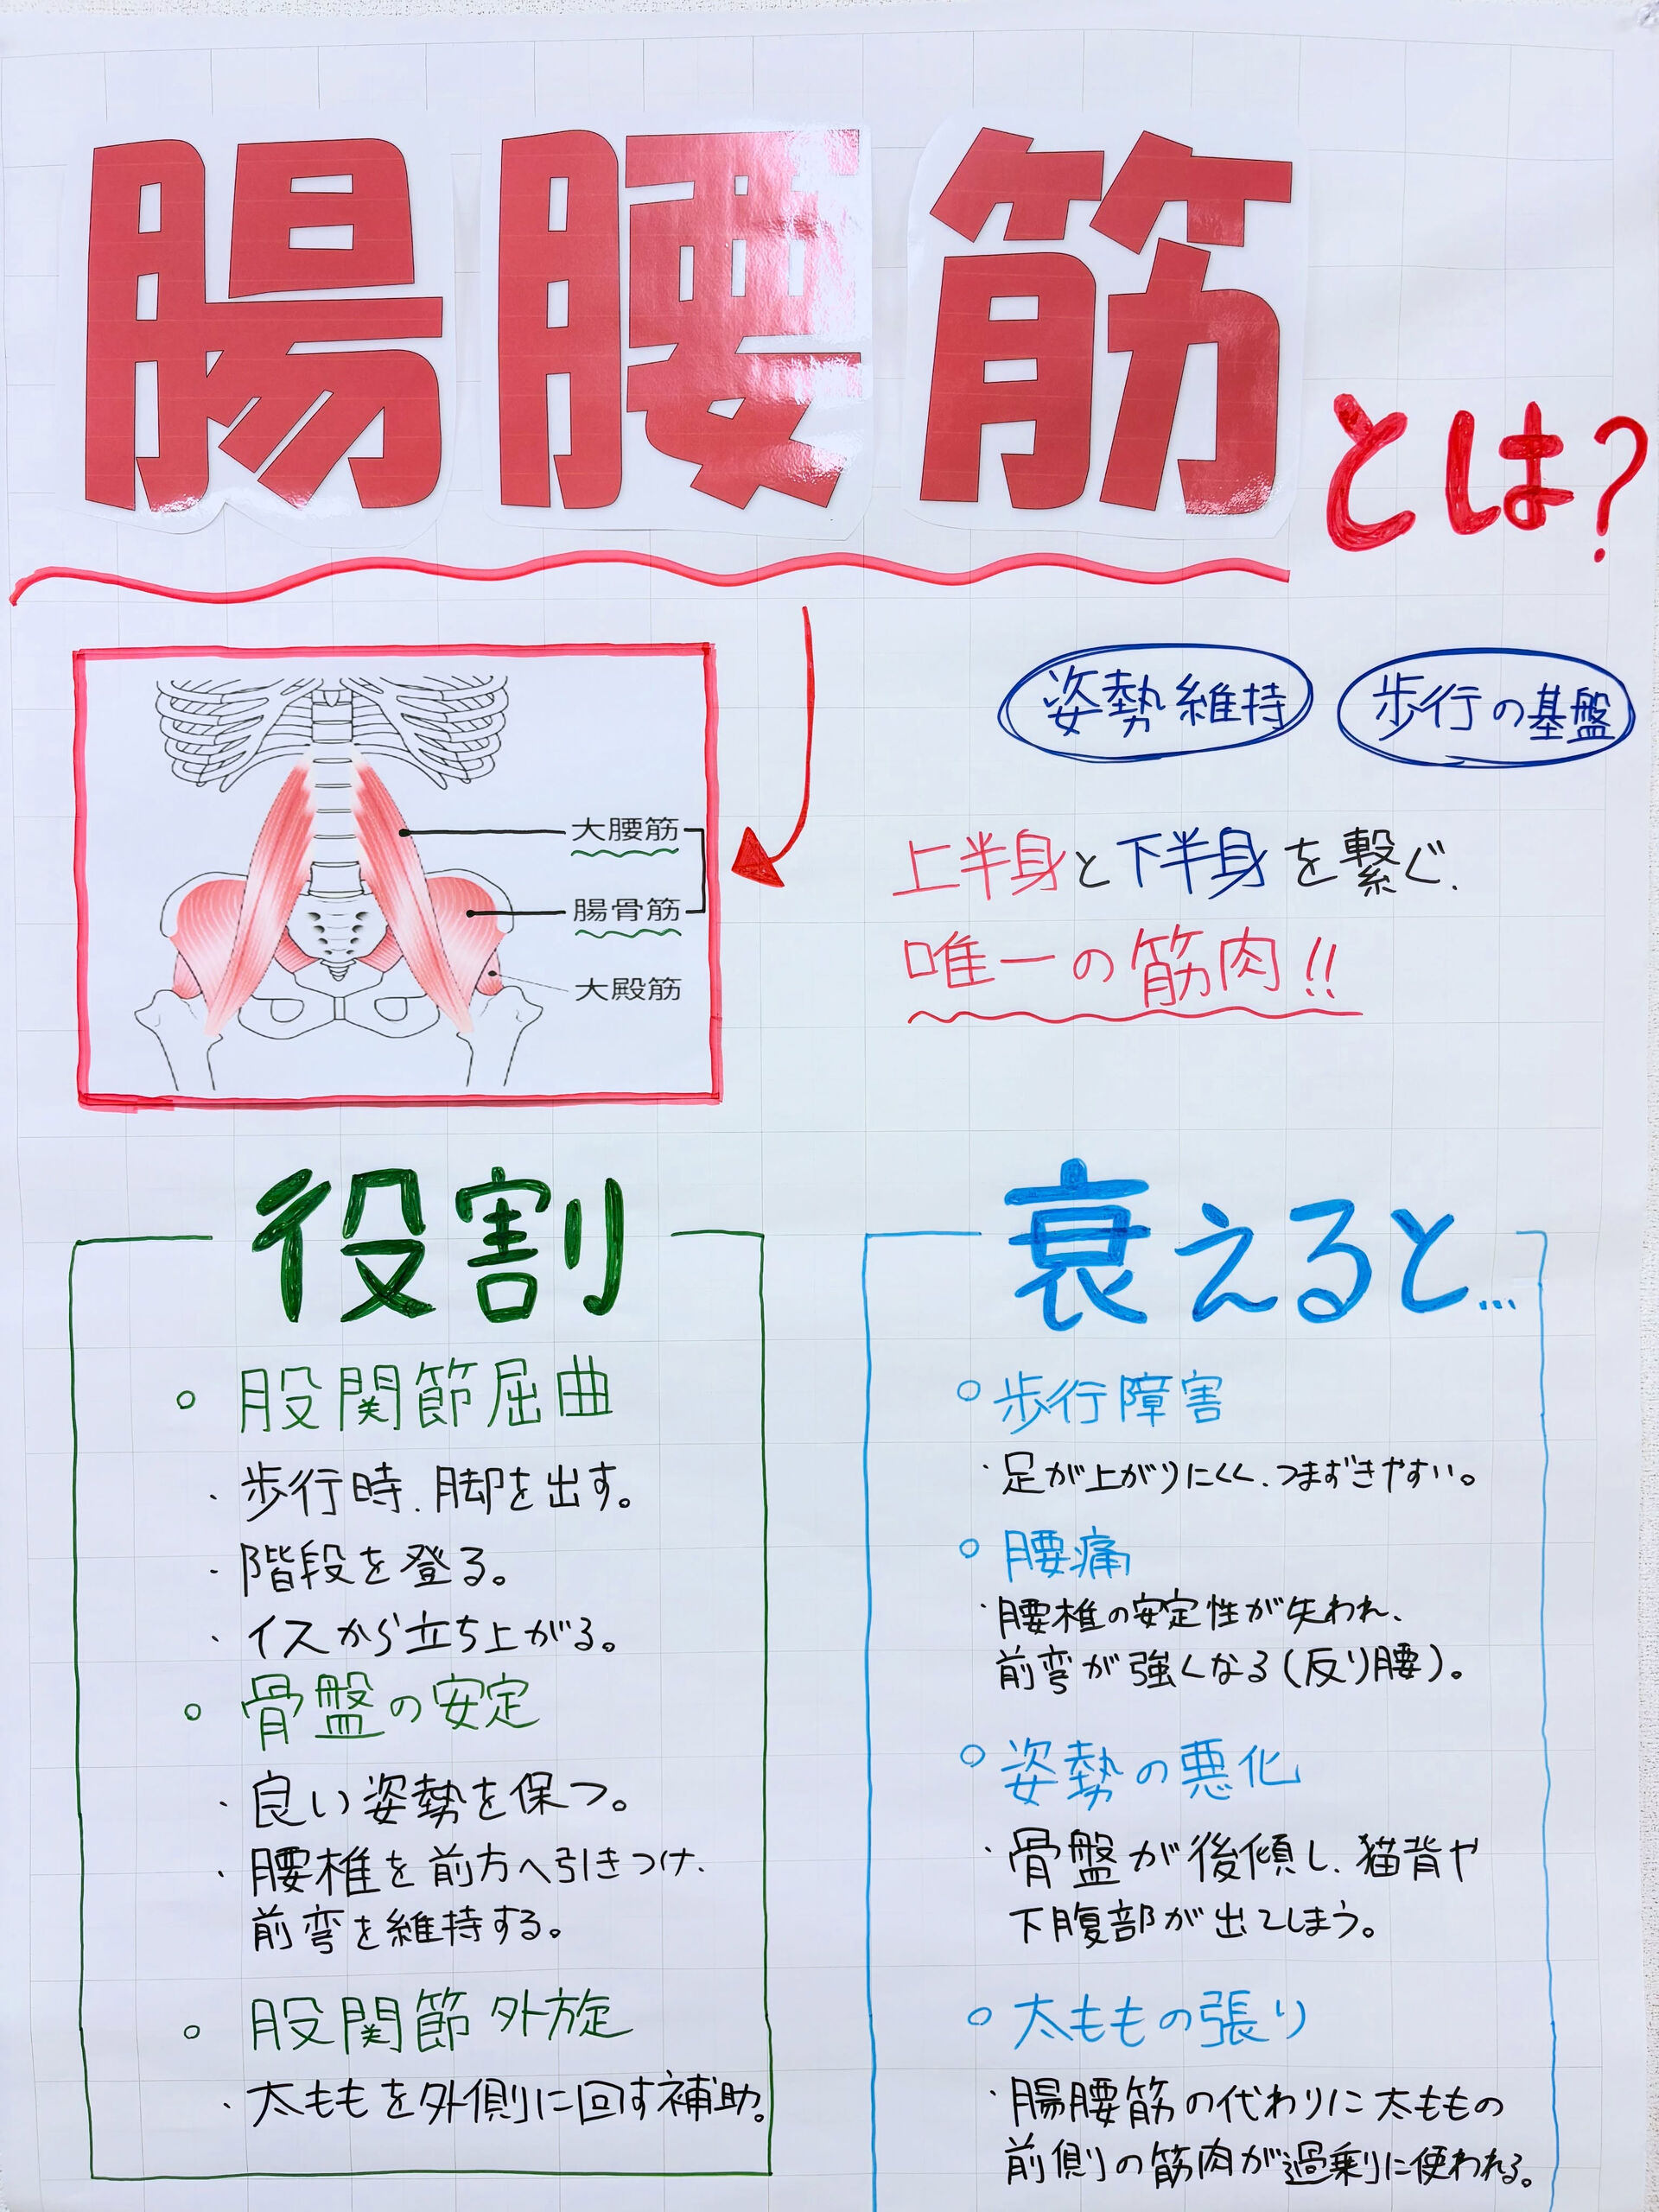 腸腰筋とは?
姿勢維持 歩行の基盤
大腰筋
腸骨筋
大殿筋
上半身と下半身を繋ぐ、
唯一の筋肉!!
役割
○ 股関節屈曲
・歩行時、脚を出す。
・階段を登る。
・イスから立ち上がる。
○ 骨盤の安定
・良い姿勢を保つ。
・腰椎を前方へ引きつけ、
前弯を維持する。
○ 股関節外旋
・太ももを外側に回す補助。
衰えると...
○ 歩行障害
・足が上がりにくく、つまずきやすい。
○ 腰痛
・腰椎の安定性が失われ、
前弯が強くなる(反り腰)。
○ 姿勢の悪化
・骨盤が後傾し、猫背や
下腹部が出てしまう。
○ 太ももの張り
・腸腰筋の代わりに太ももの
前側の筋肉が過剰に使われる。